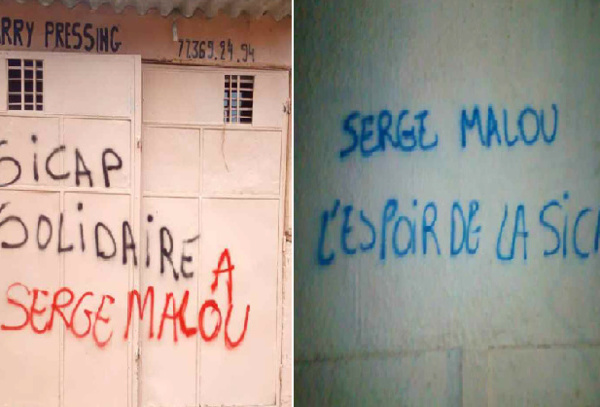 RRY PRESSING
77.369.24.94
SICAP
SOLIDAIRE A
SERGE MALOU
SERGE MALOU
L'ESPOIR DE LA SICA